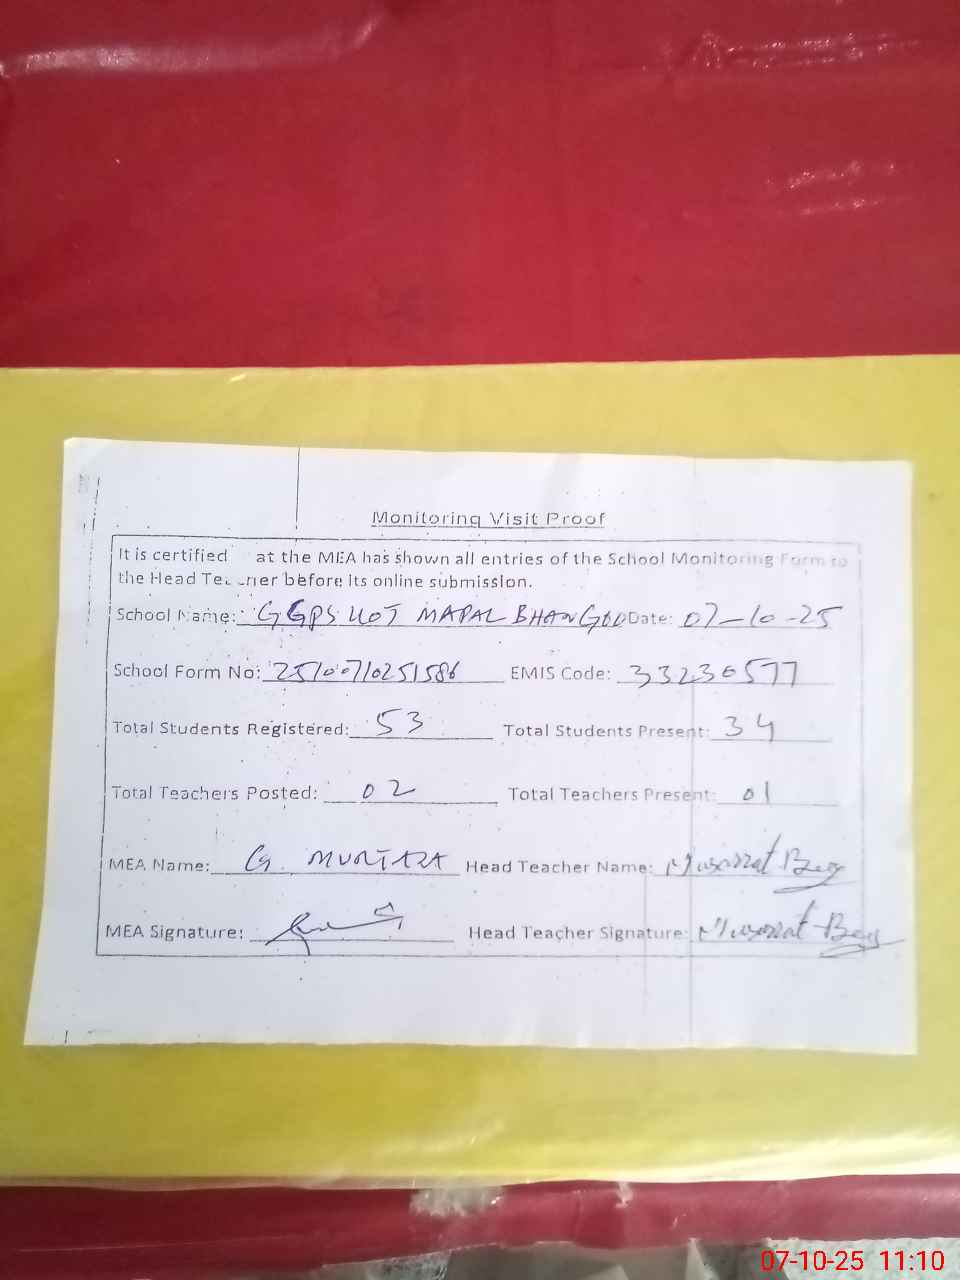 Monitoring Visit Proof
It is certified at the MEA has shown all entries of the School Monitoring Form to
the Head Teacher before its online submission.
School Name: GGPS UOT MAPAL BHAN Date: 07-10-25
School Form No: 25100710251586 EMIS Code: 33230577
Total Students Registered: 53 Total Students Present: 34
Total Teachers Posted: 02 Total Teachers Present: 01
MEA Name: G. MURTAZA Head Teacher Name: Musarrat Beg
MEA Signature: Head Teacher Signature: Musarrat Beg
07-10-25 11:10